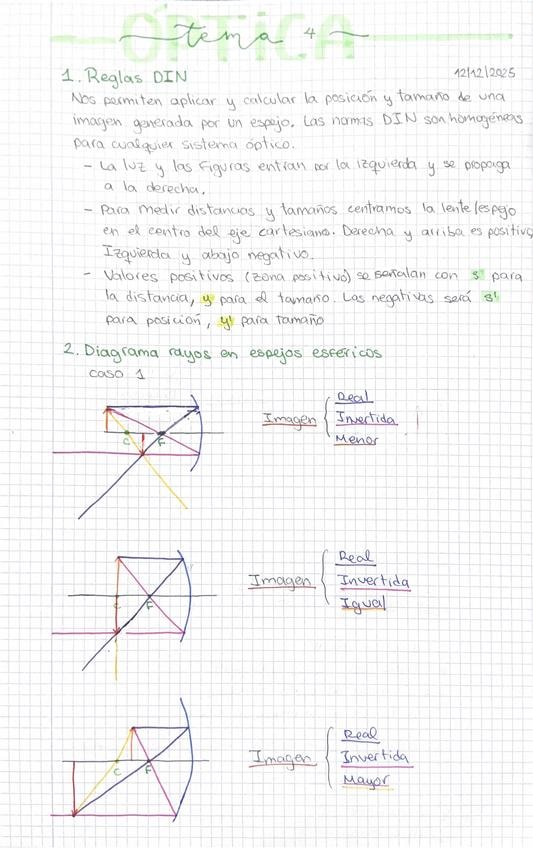 ÓPTICA
tema 4
1. Reglas DIN
12/12/2025
Nos permiten aplicar y calcular la posición y tamaño de una
imagen generada por un espejo. Las normas DIN son homogéneas
para cualquier sistema óptico.
- La luz y las figuras entran por la izquierda y se propaga
a la derecha.
- Para medir distancias y tamaños centramos la lente/espejo
en el centro del eje cartesiano. Derecha y arriba es positivo
Izquierda y abajo negativo.
- Valores positivos (zona positivo) se señalan con s para
la distancia, y para el tamaño. Las negativas será s'
para posición, y' para tamaño
2. Diagrama rayos en espejos esféricos
caso 1
Imagen
Real
Invertida
Menor
C
F
Imagen
Real
Invertida
Igual
C
F
Imagen
Real
Invertida
Mayor
C
F